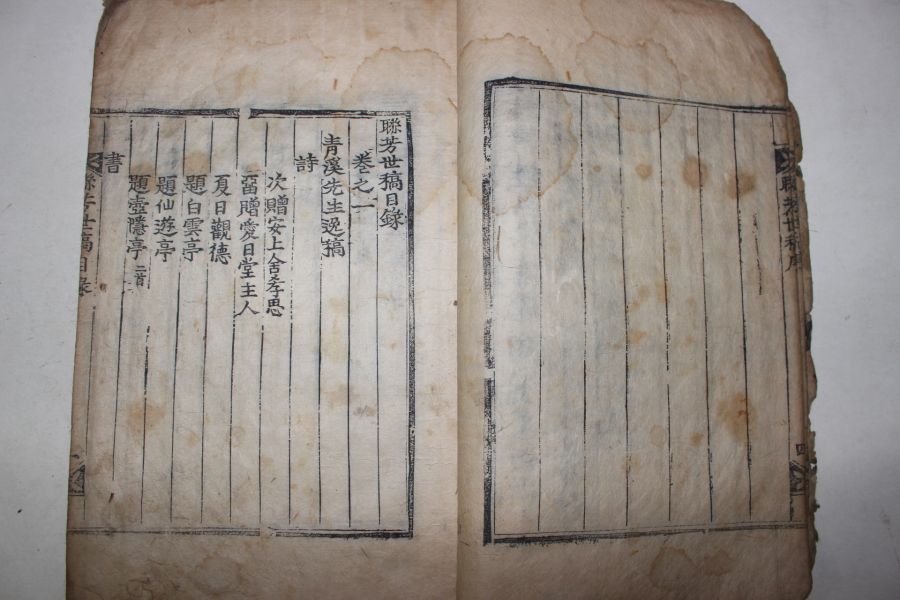 聯芳世稿序
四
聯芳世稿目錄
卷之一
青溪先生逸稿
詩
次贈安上舍孝思
留贈愛日堂主人
夏日觀德
題白雲亭
題仙遊亭
題壺隱亭二首
書
聯芳世稿目录
一